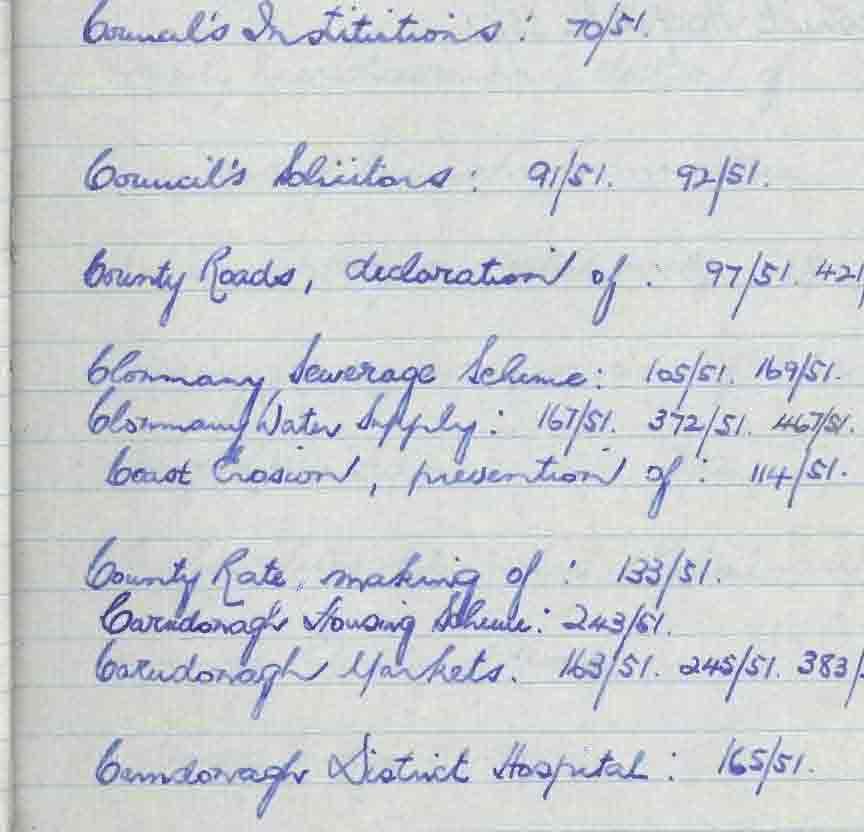 Council's Institutions : 70/51.
Council's Solicitors : 91/51. 92/51.
County Roads, declaration of : 97/51. 421/
Clonmany Sewerage Scheme: 105/51. 169/51.
Clonmany Water Supply : 167/51. 372/51. 467/51.
Coast Erosion, prevention of : 114/51.
County Rate, making of : 133/51.
Carndonagh Housing Scheme: 243/51.
Carndonagh Markets. 163/51. 245/51. 383/
Carndonagh District Hospital : 165/51.